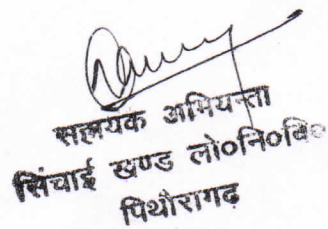 सहायक अभियन्ता
सिंचाई खण्ड लो०नि०वि०
पिथौरागढ़